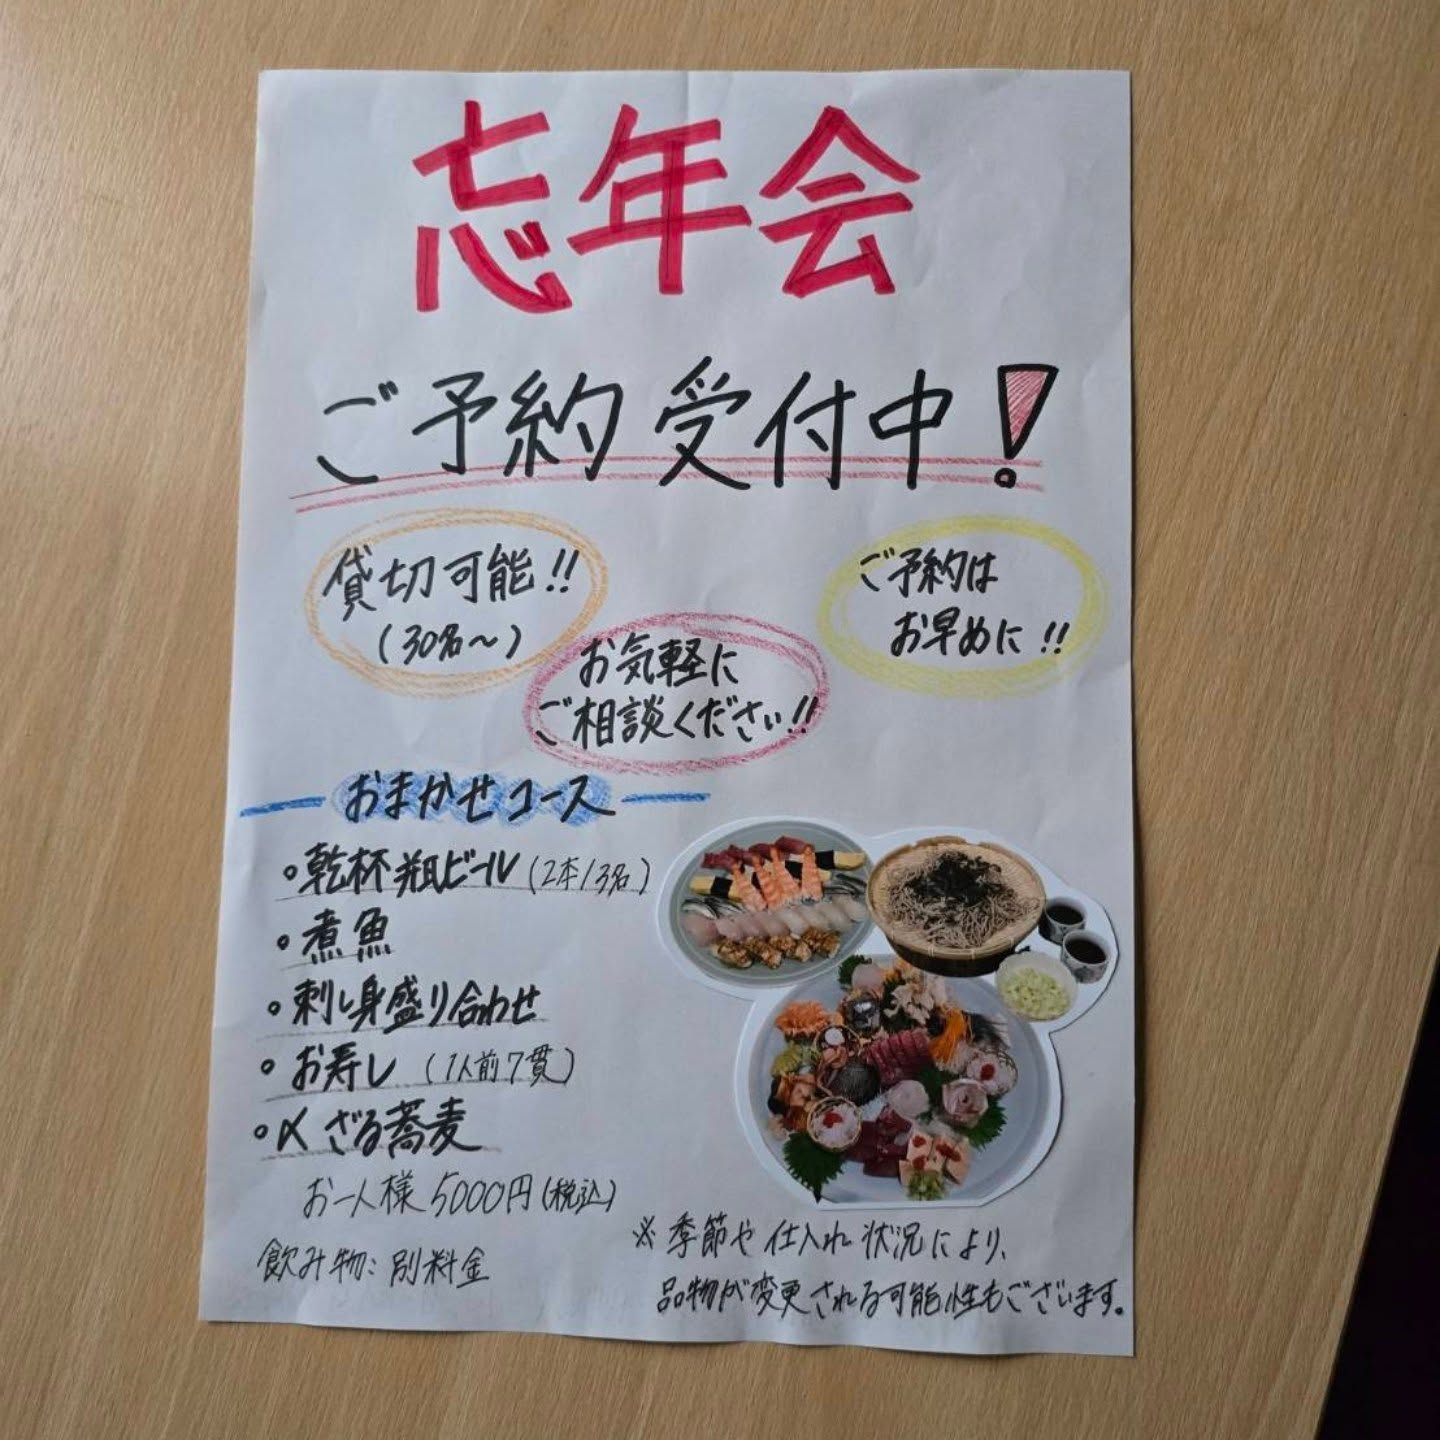 忘年会
ご予約受付中!
貸切可能!!
(30名～)
お気軽に
ご相談ください!!
ご予約は
お早めに!!
おまかせコース
・乾杯瓶ビール(2本/3名)
・煮魚
・刺し身盛り合わせ
・お寿し(1人前7貫)
・〆ざる蕎麦
お一人様5000円(税込)
飲み物:別料金
※季節や仕入れ状況により、
品物が変更される可能性もございます。